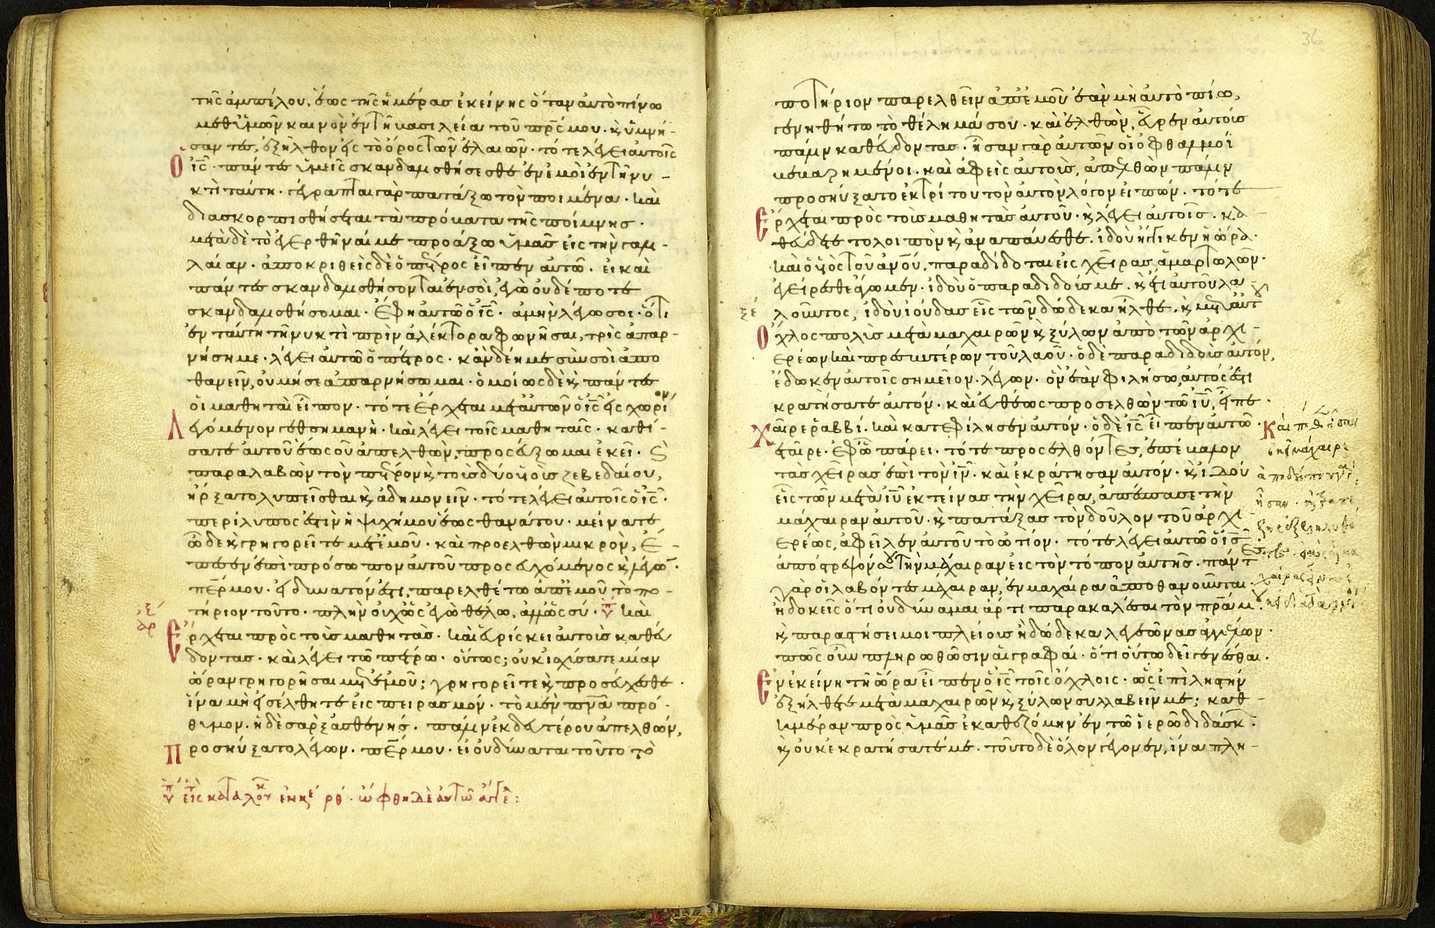 της ἀμπέλου, ἕως της ἡμέρας ἐκείνης ὅταν αὐτὸ πίνω
μεθ ὑμῶν καινὸν ἐν τῇ βασιλεία τοῦ πρς μου. κ ὑμνή-
σαντες, ἐξῆλθον εἰς τὸ ὄρος τῶν ἐλαιῶν. τότε λέγει αὐτοῖς
ὁ ις. πάντες ὑμεῖς σκανδαλισθήσεσθε ἐν ἐμοὶ ἐν τῇ νυ-
κτὶ ταύτη. γέγραπται γὰρ πατάξω τὸν ποιμένα. καὶ
διασκορπισθήσεται τὰ πρόβατα τῆς ποίμνης.
μετὰ δὲ τὸ ἐγερθῆναί με προάξω ὑμᾶς εἰς τὴν γαλ-
λαίαν. ἀποκριθεὶς δὲ ὁ πέτρος εἶπεν αὐτῶ. εἰ καὶ
πάντες σκανδαλισθήσονται ἐν σοὶ, ἐγὼ οὐδέποτε
σκανδαλισθήσομαι. ἔφη αὐτῶ ὁ ις. ἀμὴν λέγω σοι. ὅτι
ἐν ταύτη τῇ νυκτὶ πρὶν ἀλέκτορα φωνῆσαι, τρὶς ἀπαρ-
νήση με. λέγει αὐτῶ ὁ πέτρος. κἂν δέη με σὺν σοὶ ἀπο
θανεῖν, οὐ μή σε ἀπαρνήσωμαι. ὁμοίως δὲ κ πάντες
οἱ μαθηταὶ εἶπον. τότε ἔρχεται μετ αὐτῶν ὁ ις εἰς χωρίον
λεγόμενον γεθσημανή. καὶ λέγει τοῖς μαθηταῖς. καθί-
σατε αὐτοῦ ἕως οὗ ἀπελθὼν, προσεύξωμαι ἐκεῖ.
παραλαβὼν τὸν πέτρον κ τοὺς δύο υἱοὺς ζεβεδαίου,
ἤρξατο λυπεῖσθαι κ ἀδημονεῖν. τότε λέγει αὐτοῖς ὁ ις.
περίλυπός ἐστιν ἡ ψυχή μου ἕως θανάτου. μείνατε
ὧδε κ γρηγορεῖτε μετ ἐμοῦ. καὶ προελθὼν μικρὸν, ἔ-
πεσεν ἐπὶ πρόσωπον αὐτοῦ προσευχόμενος κ λέγων.
περ μου. εἰ δυνατόν ἐστι, παρελθέτω ἀπ ἐμοῦ τὸ πο-
τήριον τοῦτο. πλὴν οὐχ ὡς ἐγὼ θέλω, ἀλλ ὡς σύ. καὶ
ἔρχεται πρὸς τοὺς μαθητὰς. καὶ εὑρίσκει αὐτοὺς καθεύ
δοντας. καὶ λέγει τῶ πέτρω. οὕτως; οὐκ ἰσχύσατε μίαν
ὥραν γρηγορῆσαι μετ ἐμοῦ; γρηγορεῖτε κ προσεύχεσθε.
ἵνα μὴ εἰσέλθητε εἰς πειρασμόν. τὸ μὲν πνα πρό-
θυμον. ἡ δὲ σὰρξ ἀσθενής. πάλιν ἐκ δευτέρου ἀπελθὼν,
προσηύξατο λέγων. περ μου. εἰ οὐ δύναται τοῦτο τὸ
ὤφθη δὲ αὐτῶ
ποτήριον παρελθεῖν ἀπ ἐμοῦ ἐὰν μὴ αὐτὸ πίω,
γενηθήτω τὸ θέλημά σου. καὶ ἐλθὼν, εὗρεν αὐτοὺς
πάλιν καθεύδοντας. ἦσαν γὰρ αὐτῶν οἱ ὀφθαλμοὶ
βεβαρημένοι. καὶ ἀφεὶς αὐτοὺς, ἀπελθὼν πάλιν
προσηύξατο ἐκ τρίτου τὸν αὐτὸν λόγον εἰπών. τότε
ἔρχεται πρὸς τοὺς μαθητὰς αὐτοῦ. κ λέγει αὐτοῖς. κα-
θεύδετε τολοιπὸν κ ἀναπαύεσθε. ἰδοὺ ἤγγικεν ἡ ὥρα.
καὶ ὁ υἱὸς τοῦ ἀνου, παραδίδοται εἰς χεῖρας ἁμαρτωλῶν.
ἐγείρεσθε ἄγωμεν. ἰδοὺ ὁ παραδιδούς με. κ ἔτι αὐτοῦ λα
λοῦντος, ἰδοὺ ἰούδας εἷς τῶν δώδεκα ἦλθε. κ μετ αὐτ
ὄχλος πολὺς μετὰ μαχαιρῶν κ ξύλων ἀπὸ τῶν ἀρχι-
ερέων καὶ πρεσβυτέρων τοῦ λαοῦ. ὁ δὲ παραδιδοὺς αὐτόν,
ἔδωκεν αὐτοῖς σημεῖον. λέγων. ὃν ἐὰν φιλήσω, αὐτός ἐστι
κρατήσατε αὐτόν. καὶ εὐθέως προσελθὼν τῶ ιυ, εἶπε.
χαῖρε ῥαββί. καὶ κατεφίλησεν αὐτόν. ὁ δὲ ις εἶπεν αὐτῶ
ἑταῖρε. ἐφ ὧ πάρει. τότε προσελθόντες, ἐπέβαλον
τὰς χεῖρας ἐπὶ τὸν ιν. καὶ ἐκράτησαν αὐτόν. κ ἰδοὺ
εἷς τῶν μετὰ ιυ ἐκτείνας τὴν χεῖρα, ἀπέσπασε τὴν
μάχαιραν αὐτοῦ. κ πατάξας τὸν δοῦλον τοῦ ἀρχι-
ερέως, ἀφεῖλεν αὐτοῦ τὸ ὠτίον. τότε λέγει αὐτῶ ὁ ις
ἀπόστρεψόν σου τὴν μάχαιραν εἰς τὸν τόπον αὐτῆς. πάντες
γὰρ οἱ λαβόντες μάχαιραν, ἐν μαχαίρα ἀποθανοῦνται.
ἢ δοκεῖς ὅτι οὐ δύναμαι ἄρτι παρακαλέσαι τὸν πρα μου.
κ παραστήσει μοι πλείους ἢ δώδεκα λεγεῶνας ἀγγέλων.
πῶς οὖν πληρωθῶσιν αἱ γραφαί. ὅτι οὕτω δεῖ γενέσθαι.
ἐν ἐκείνη τῇ ὥρα εἶπεν ὁ ις τοῖς ὄχλοις. ὡς ἐπὶ ληστὴν
ἐξήλθετε μετὰ μαχαιρῶν κ ξύλων συλλαβεῖν με; καθ-
ἡμέραν πρὸς ὑμᾶς ἐκαθεζόμην ἐν τῶ ἱερῶ διδάσκ.
κ οὐκ ἐκρατήσατέ με. τοῦτο δὲ ὅλον γέγονεν, ἵνα πλη-
36